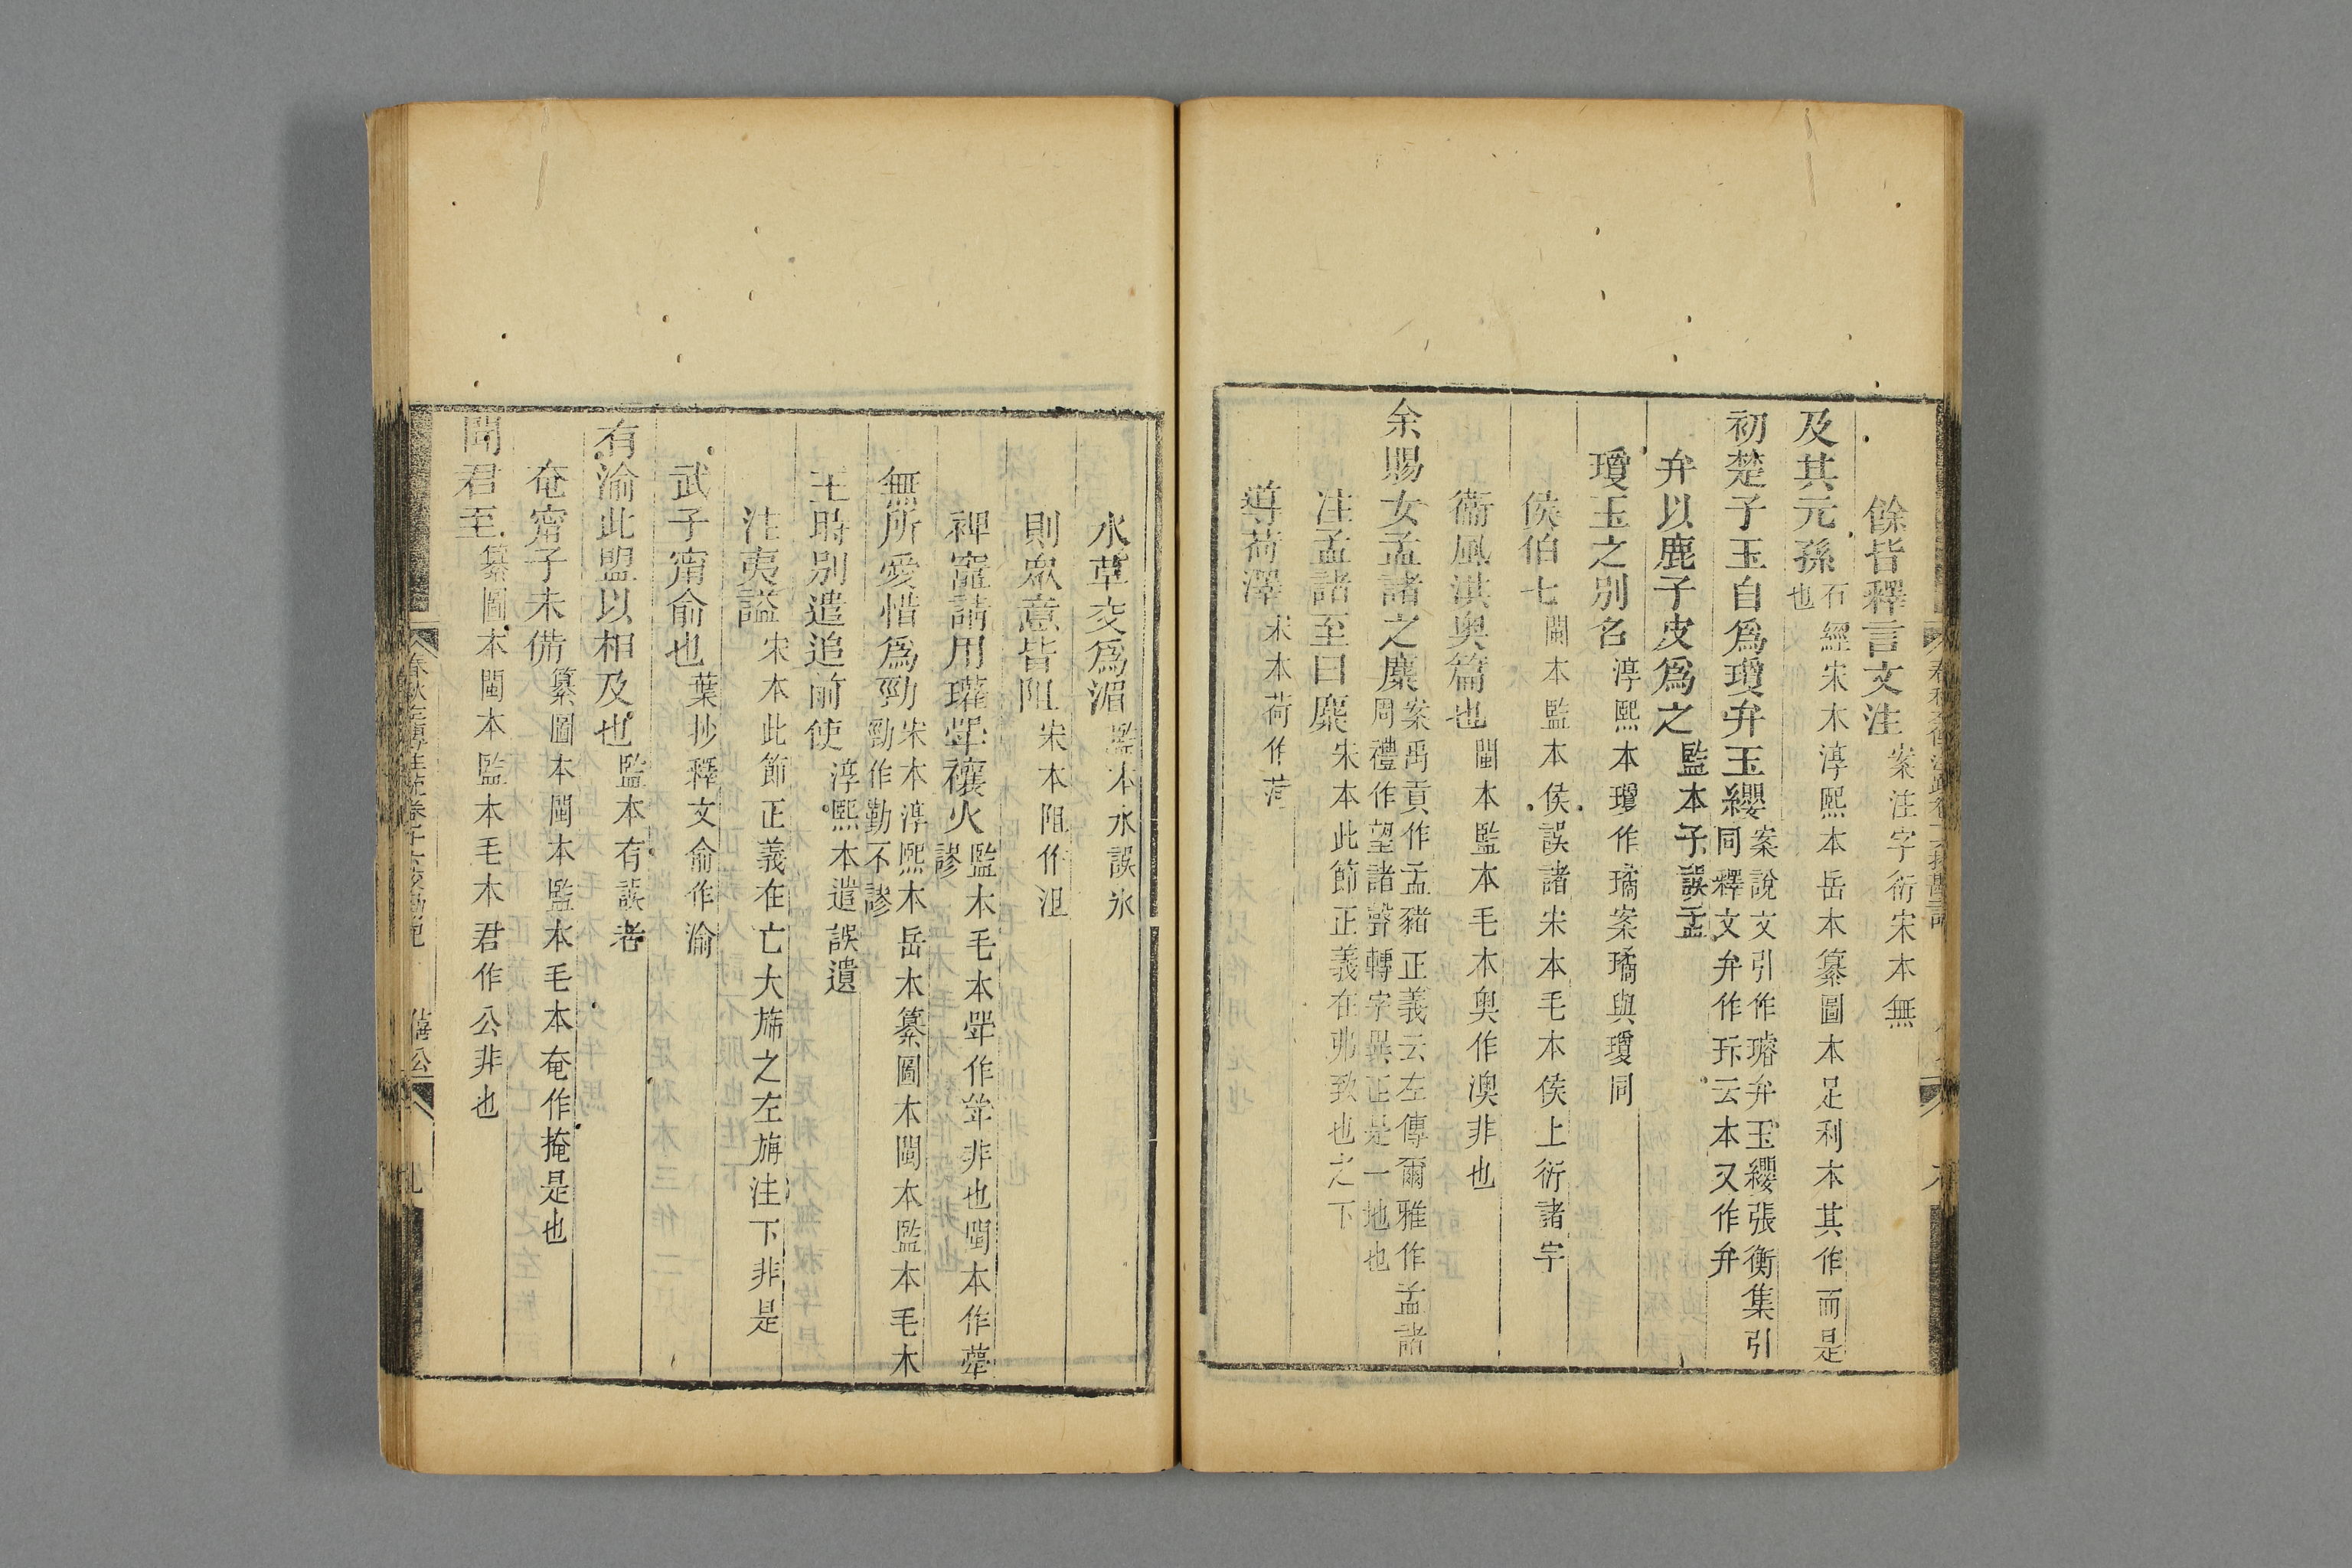 餘皆釋言文注 案注字衍宋本無
及其元孫 石經宋本淳熙本岳本纂圖本足利本其作而是也
初楚子玉自爲瓊弁玉纓 案說文引作璿弁玉纓張衡集引同釋文弁作玝云本又作弁
弁以鹿子皮爲之 監本子誤孟
瓊玉之別名 淳熙本瓊作璚案璚與瓊同
侯伯七 閩本監本侯誤諸宋本毛本侯上衍諸字
衞風淇奧篇也 閩本監本毛本奧作澳非也
余賜女孟諸之麋 案禹貢作孟豬正義云左傳爾雅作孟諸周禮作望諸聲轉字異正是一地也
注孟諸至曰麋 宋本此節正義在弗致也之下
導荷澤 宋本荷作菏
春秋左傳注疏卷十六挍勘記
水草交爲湄 監本水誤氷
則眾意皆阻 宋本阻作沮
禆竈請用瓘斝禳火 監本毛本斝作斚非也閩本作蕶謬
無所愛惜爲勁 宋本淳熙本岳本纂圖本閩本監本毛本勁作勤不謬
王時別遣追前使 淳熙本遣誤遺
注夷謚 宋本此節正義在亡大旆之左旃注下非是
武子甯俞也 葉抄釋文俞作渝
有渝此盟以相及也 監本有誤者
奄甯子未備 纂圖本閩本監本毛本奄作掩是也
聞君至 纂圖本閩本監本毛本君作公非也
春秋左傳注疏卷十六挍勘記 僖公 九